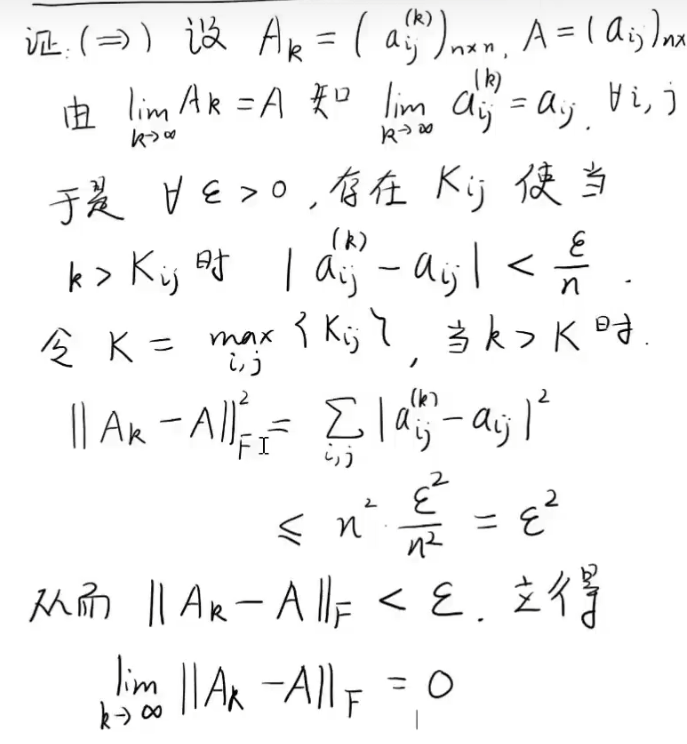 证:(⇒) 设 A_k = ( a_{ij}^{(k)} )_{n×n}, A = ( a_{ij} )_{n×
由 lim_{k→∞} A_k = A 知 lim_{k→∞} a_{ij}^{(k)} = a_{ij}, ∀ i, j
于是 ∀ ε > 0, 存在 K_{ij} 使当
k > K_{ij} 时 | a_{ij}^{(k)} - a_{ij} | < ε/n .
令 K = max_{i,j} { K_{ij} }, 当 k > K 时.
‖ A_k - A ‖_F^2 = ∑_{i,j} | a_{ij}^{(k)} - a_{ij} |^2
≤ n^2 · ε^2/n^2 = ε^2
从而 ‖ A_k - A ‖_F < ε. 立得
lim_{k→∞} ‖ A_k - A ‖_F = 0